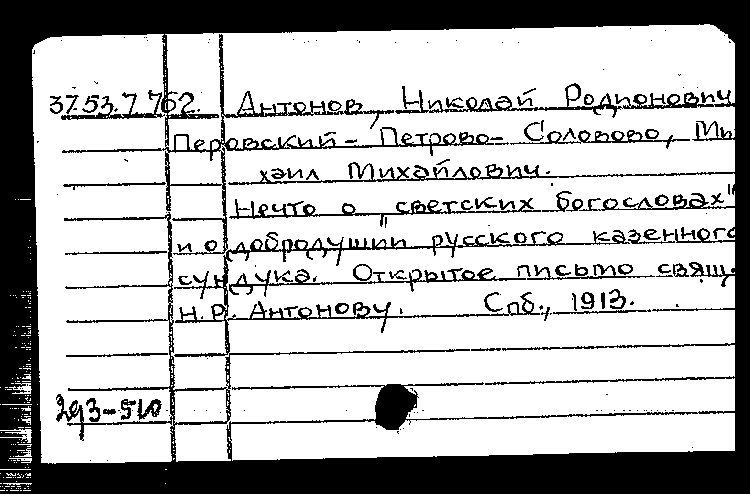 37.53.7.762. Антонов, Николай Родионович
Перовский - Петрово- Соловово, Ми
хаил Михайлович.
Нечто о "светских богословах"
и о добродушии русского казенного
сундука. Открытое письмо свящ.
Н.Р. Антонову. Спб., 1913.
293-510